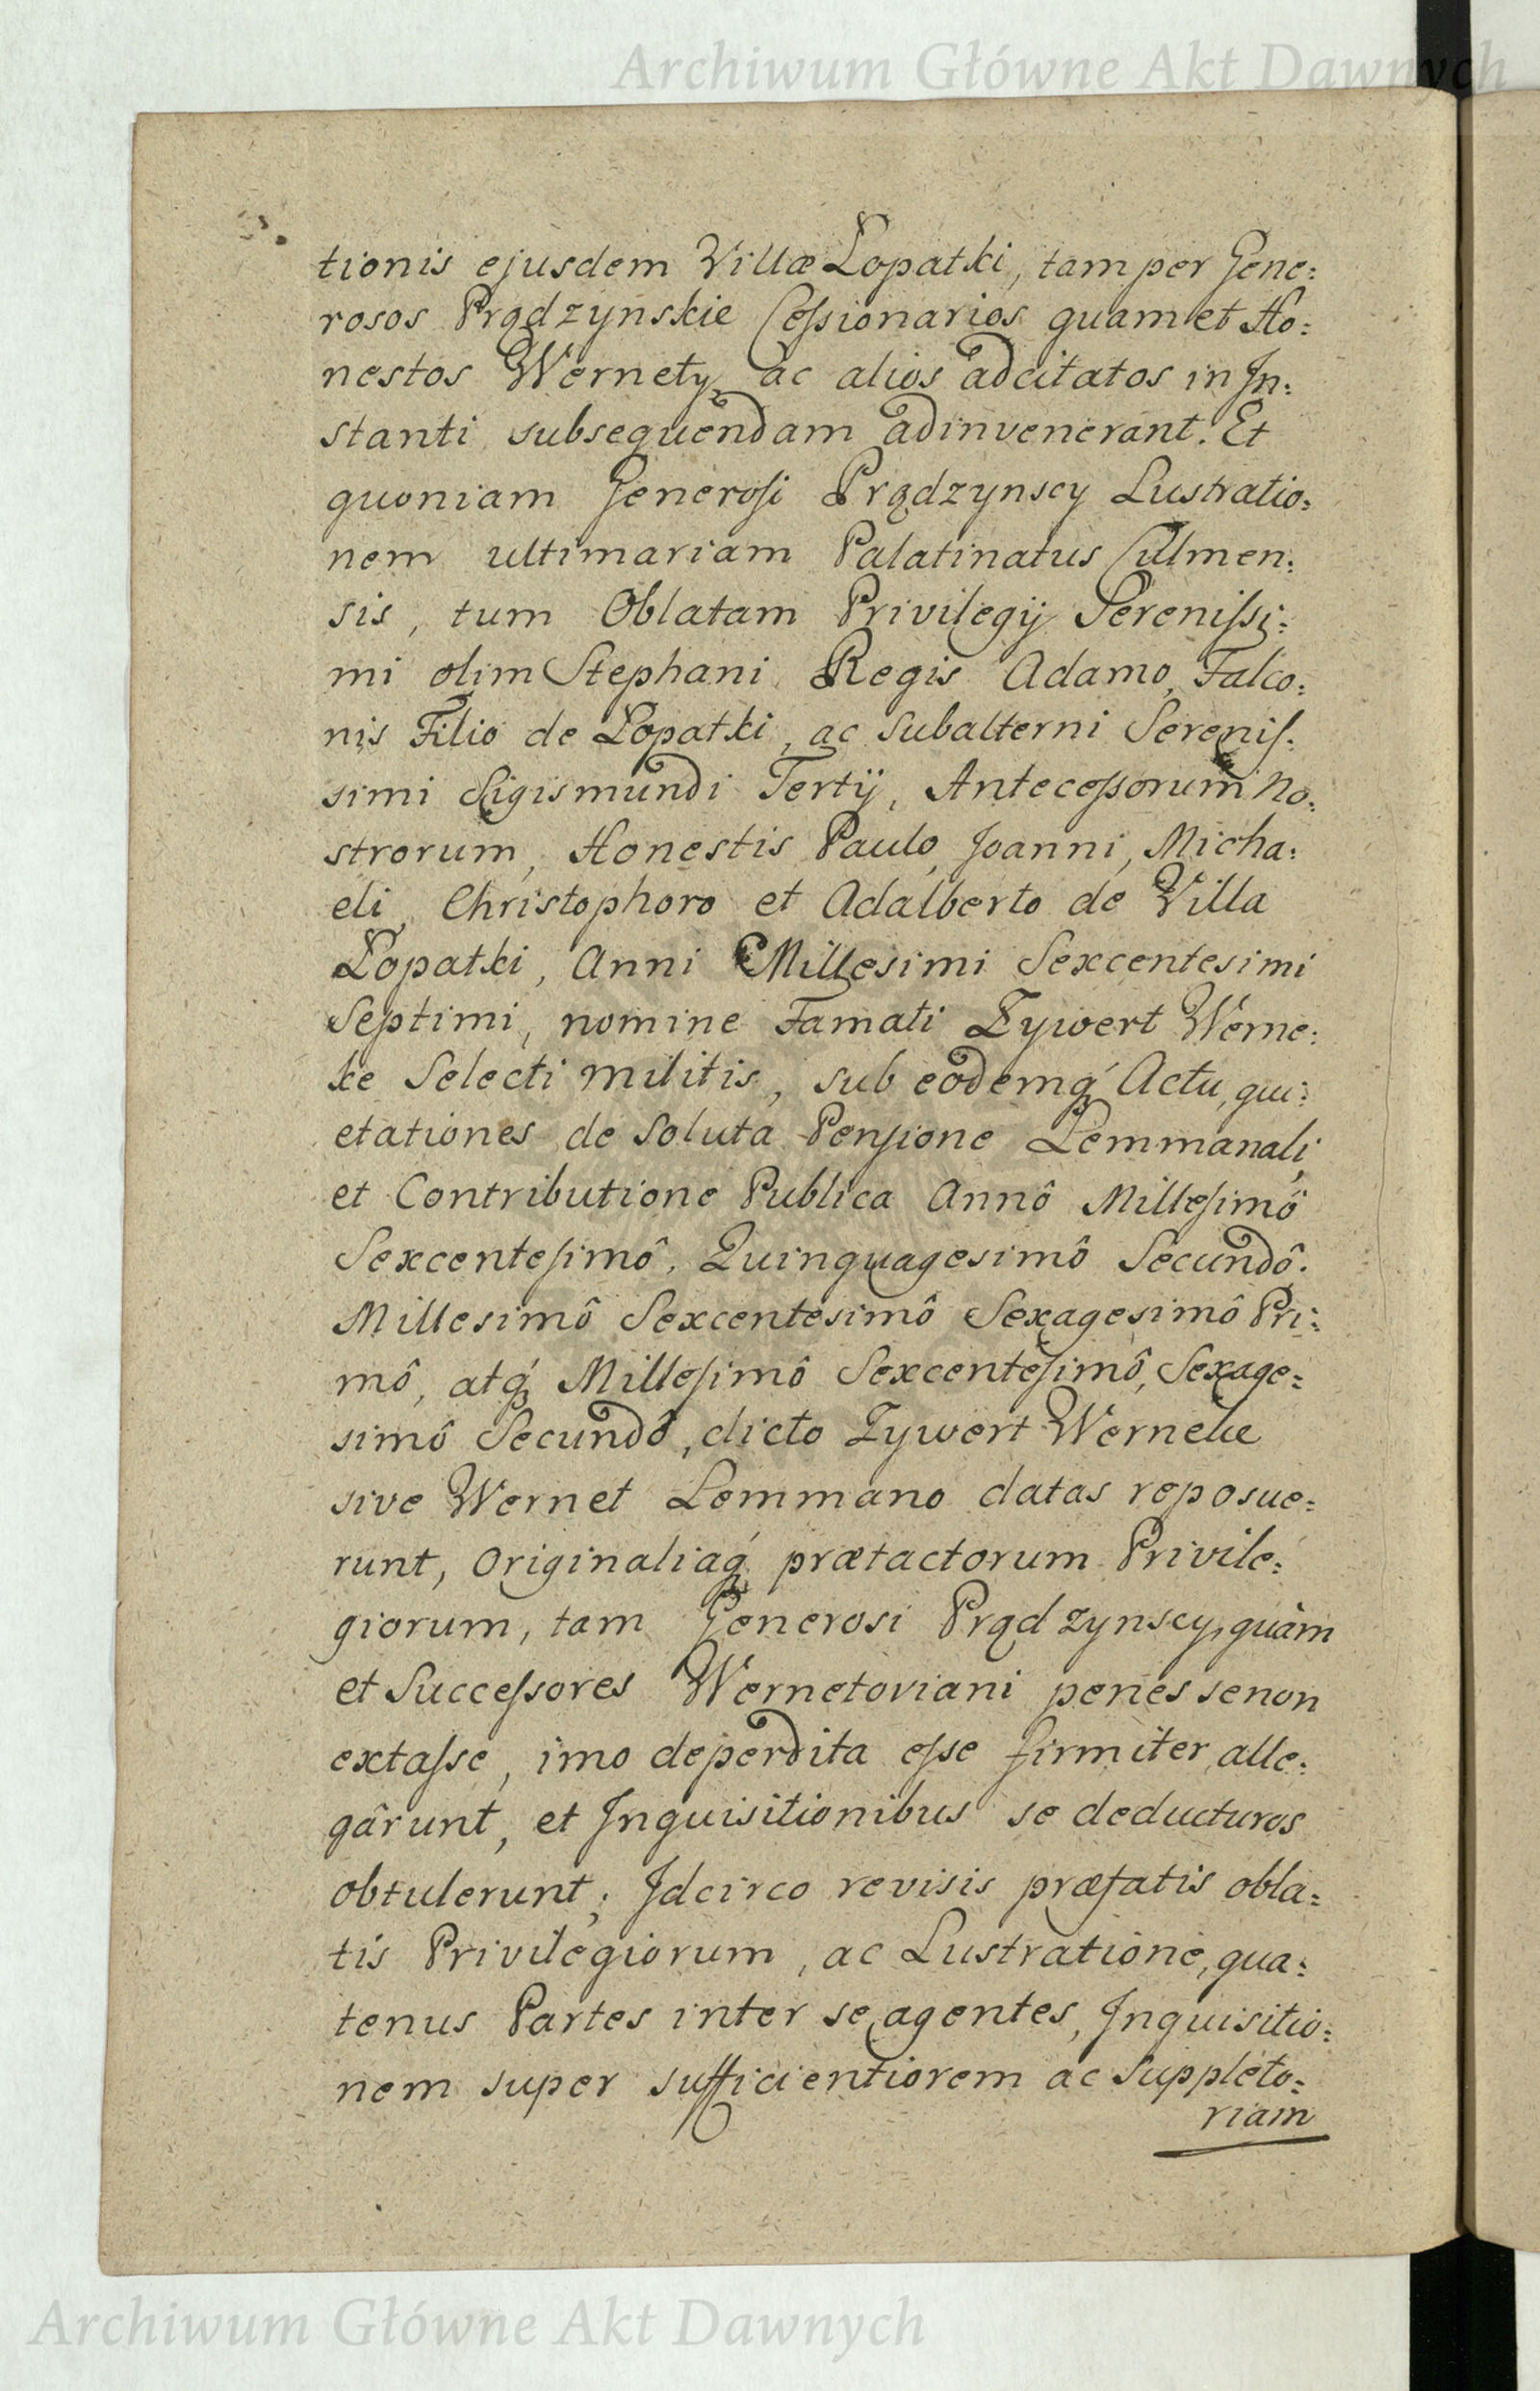 Archiwum Główne Akt Dawnych
tionis ejusdem Villæ Łopatki, tam per Gene:
rosos Prądzynskie Ceſsionarios quam et Ho:
nestos Wernety ac alios adcitatos in In:
stanti subsequendam adinvenerant. Et
quoniam Generoſi Prądzynscy Lustratio:
nem ultimariam Palatinatus Culmen:
sis, tum Oblatam Privilegij Sereniſsi:
mi olim Stephani Regis Adamo, Falco:
nis Filio de Łopatki, ac subalterni Sereniſ:
simi Sigismundi Tertÿ, Anteceſsorum no:
strorum, Honestis Paulo, Joanni, Micha:
eli, Christophoro et Adalberto de Villa
Łopatki, Anni Millesimi Sexcentesimi
Septimi, nomine Famati Zywert Werne:
ke Selecti militis, sub eodemq́ Actu, qui:
etationes de soluta Penſione Lemmanali,
et Contributione Publica Annô Milleſimô
Sexcenteſimô, Quinquagesimô Secundô.
Millesimô Sexcentesimô Sexagesimô Pri:
mô, atq́ Milleſimô Sexcenteſimô, Sexage:
simô Secundô, dicto Zywert Werneke
sive Wernet Lemmano datas reposue:
runt, Originaliaq́ prætactorum Privile:
giorum, tam Generosi Prądzynscy, quàm
et Succeſsores Wernetoviani penes se non
extaſse, imo deperdita eſse firmiter alle:
gârunt, et Inquisitionibus se deducturos
obtulerunt; Idcirco revisis præfatis obla:
tis Privilegiorum, ac Lustratione, qua:
tenus Partes inter se agentes, Inquisitio:
nem super sufficientiorem ac Suppleto:
riam
Archiwum Główne Akt Dawnych